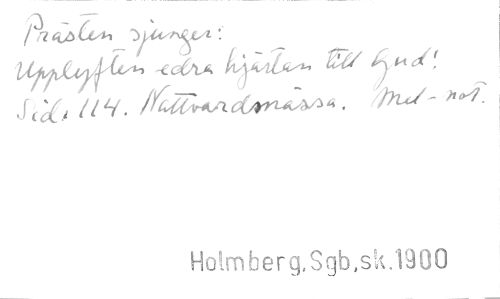 Prästen sjunger:
Upplyften edra hjärtan till Gud!
Sid. 114. Nattvardsmässa. Mel-not.
Holmberg,Sgb,sk.1900